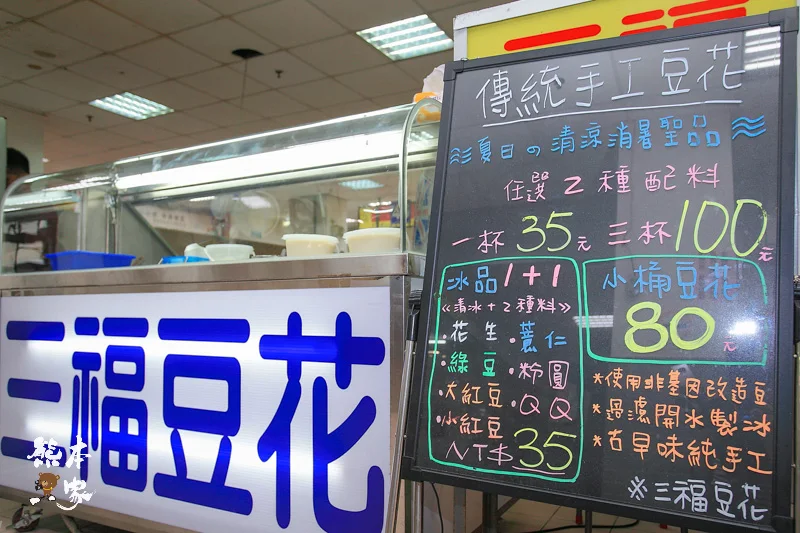 三福豆花
熊本
家
傳統手工豆花
夏日の清涼消暑聖品
任選2種配料
一杯35元 三杯100元
冰品1+1
《清冰+2種料》
花生·薏仁
·綠豆·粉圓
·大紅豆·QQ
·小紅豆
NT$35
小桶豆花
80元
*使用非基因改造豆
*過濾開水製冰
*古早味純手工
※三福豆花